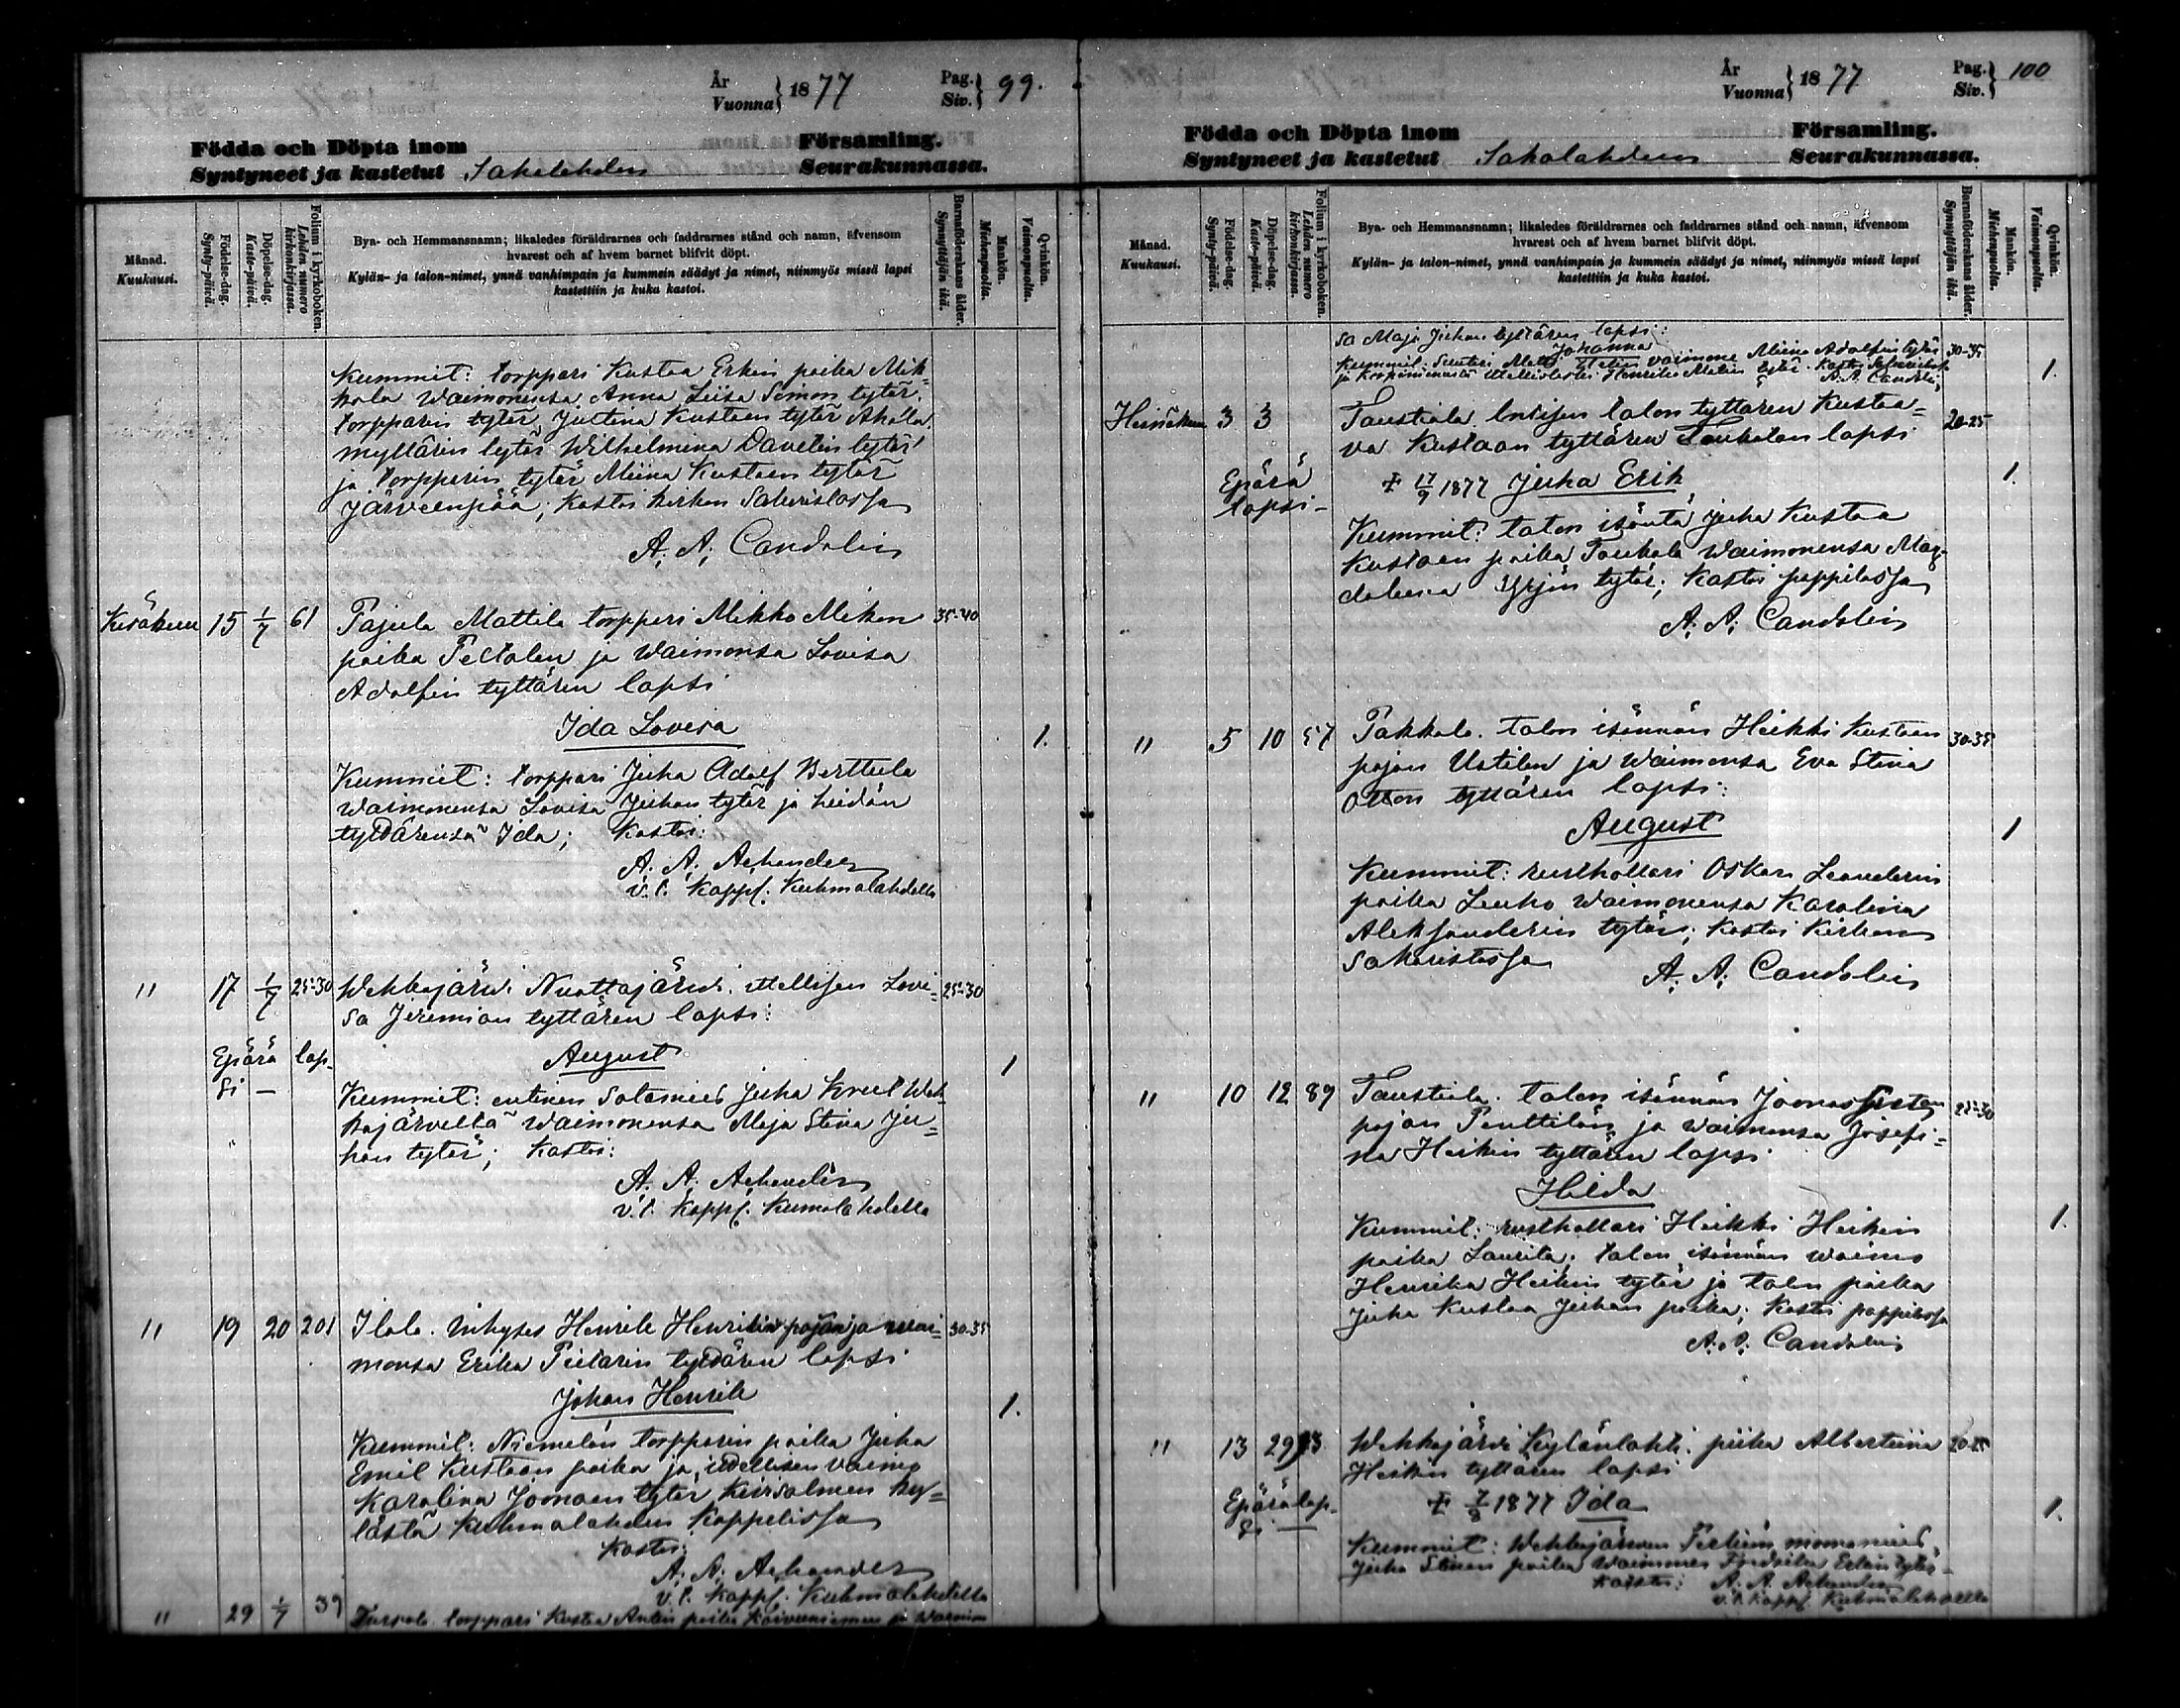 År
Vuonna } 1877 Pag.
Siv. } 99.
Födda och Döpta inom Församling.
Syntyneet ja kastetut Sahalahden Seurakunnassa.
Månad.
Kuukausi.
Födelse-dag.
Synty-päivä.
Döpelse-dag.
Kaste-päivä.
Folium i kyrkoboken.
Lehden numero
kirkonkirjassa.
Bya- och Hemmansnamn; likaledes föräldrarnes och faddrarnes stånd och namn, äfvensom
hvarest och af hvem barnet blifvit döpt.
Kylän- ja talon-nimet, ynnä vanhimpain ja kummein säädyt ja nimet, niinmyös missä lapsi
kastettiin ja kuka kastoi.
Barnaföderskans ålder.
Synnyttäjän ikä.
Mankön.
Miehenpuolta.
Qvinkön.
Vaimonpuolta.
Kummit: torppari Kustaa Erkin poika Mik-
kola waimonensa Anna Liisa Simon tytär,
torpparin tytär Justina Kustaan tytär Ahola,
myllärin tytär Wilhelmina Davetin tytär
ja torpparin tytär Miina Kustaan tytär
Järveenpää; Kastoi kirkon Sakaristossa
A. A. Candolin
Kesäkuu 15 1/7 61 Pajula Mattila torppari Mikko Mikon 35-40
poika Peltolan ja waimonsa Lovisa
Adolfin tyttären lapsi
Ida Lovisa 1.
Kummit: torppari Juha Adolf Berttula
waimonensa Lovisa Juhan tytär ja heidän
tyttärensä Ida; Kastoi:
A. A. Achander
v. t. Kappl. Kuhmalahdella
" 17 1/7 25-30 Wehkajärvi Nuottajärvi. Itellisen Lovi- 25-30
sa Jeremian tyttären lapsi:
Epärä lap-
si —
August 1
Kummit: entinen Sotamies Juha Kreul Weh-
kajärveltä waimonensa Maja Stina Ju-
han tytär; Kastoi:
A. A. Achander
v. t. Kappl. Kumalahdella
" 19 20 201 Ilola. Inhyses Henrik Henrikin pojan ja wai- 30-35
monsa Erika Pietarin tyttären lapsi
Johan Henrik 1.
Kummit: Niemelän torpparin poika Juha
Emil Kustaan poika ja itellisen vaimo
Karolina Joonaan tytär Kuisalmen ky-
lästä Kuhmalahden Kappelissa
Kastoi:
A. A. Achander
v. t. Kappl. Kuhmalahdella
" 29 1/7 39 torppari Kustaa Antin poika Koivuniemen ja waimon
År
Vuonna } 1877 Pag.
Siv. } 100
Födda och Döpta inom Församling.
Syntyneet ja kastetut Sahalahden Seurakunnassa.
Månad.
Kuukausi.
Födelse-dag.
Synty-päivä.
Döpelse-dag.
Kaste-päivä.
Folium i kyrkoboken.
Lehden numero
kirkonkirjassa.
Bya- och Hemmansnamn; likaledes föräldrarnes och faddrarnes stånd och namn, äfvensom
hvarest och af hvem barnet blifvit döpt.
Kylän- ja talon-nimet, ynnä vanhimpain ja kummein säädyt ja nimet, niinmyös missä lapsi
kastettiin ja kuka kastoi.
Barnaföderskans ålder.
Synnyttäjän ikä.
Mankön.
Miehenpuolta.
Qvinkön.
Vaimonpuolta.
sa Maja Juhan tyttären lapsi: 30-35
Johanna 1.
Kummit: Suutari Matts vaimone Miina Adolfin tytär
ja Henrika Matin tytär. Kastoi
A. A. Candolin
Heinäkuu 3 3 Taustiala entisen talon tyttären Kustaa- 20-25
va Kustaan tyttären Toukolan lapsi
Epärä
lapsi —
† 17/9 1877 Juha Erik 1.
Kummit: talon isäntä Juha Kustaa
Kustaan poika Toukola waimonensa Mag-
dalena Yrjön tytär; Kastoi pappilassa
A. A. Candolin
" 5 10 57 Pakkala. talon isännän Heikki Kustaan 30-35
pojan Uotilan ja waimonsa Eva Stina
Otton tyttären lapsi:
August 1
Kummit: rusthollari Oskar Leanderin
poika Leuko waimonensa Karolina
Aleksanderin tytär; Kastoi Kirkon
Sakaristossa
A. A. Candolin
" 10 12 89 Taustiala. talon isännän Joonas Justen 25-30
pojan Penttilän ja waimonsa Josefi-
na Heikin tyttären lapsi
Hilda 1.
Kummit: rusthollari Heikki Heikin
poika Laurila, talon isännän waimo
Henrika Heikin tytär ja talon poika
Juha Kustaa Juhan poika; Kastoi pappilassa
A. A. Candolin
" 13 29 Wehkajärvi Kylänlahti. piika Albertiina 20-25
Heikin tyttären lapsi
Epärä lap-
si —
† 7/8 1877 Ida 1.
Kummit: Wehkajärven
Juha poika waimonen Fredrika Erkin tytär
Kastoi: A. A. Achander
v. t. Kappl. Kuhmalahdella